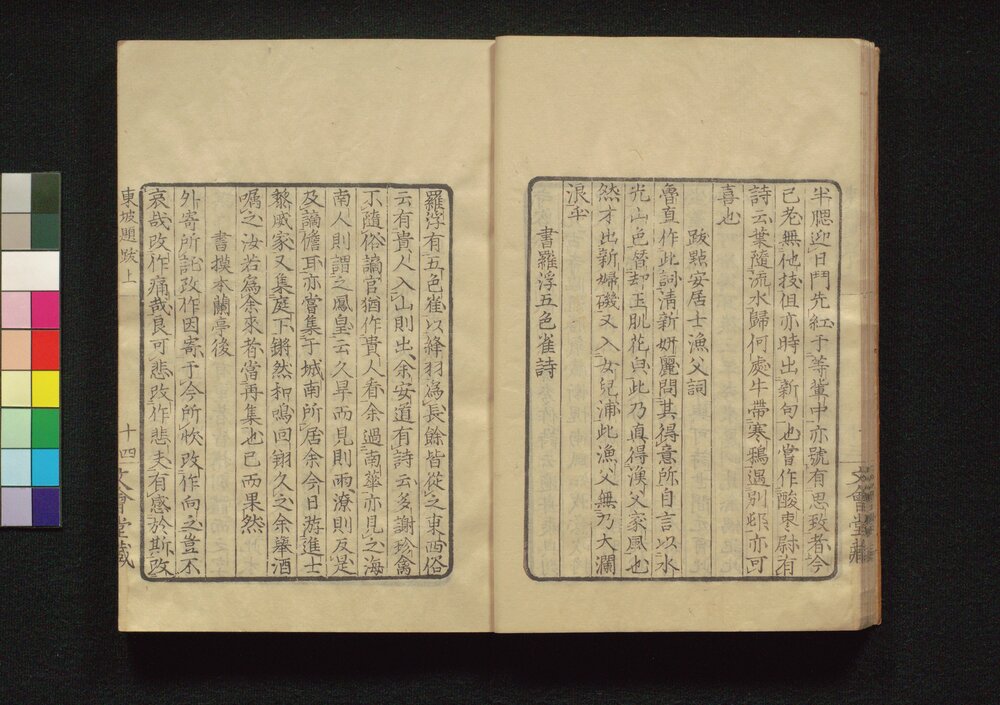 半腮迎日鬥先紅于等輩中亦號有思致者今
已老無他技但亦時出新句也嘗作酸棗尉有
詩云葉隨流水歸何處牛帶寒鴉過別邨亦可
喜也
跋黔安居士漁父詞
魯直作此詞清新妍麗問其得意所自言以水
光山色替却玉肌花皃此乃真得漁父家風也
然才出新婦磯又入女兒浦此漁父無乃大瀾
浪乎
書羅浮五色雀詩
羅浮有五色雀以絳羽為長餘皆從之東西俗
云有貴人入山則出余安道有詩云多謝珍禽
不隨俗謫官猶作貴人看余過南華亦見之海
南人則謂之鳳皇云久旱而見則雨潦則反是
及謫儋耳亦嘗集于城南所居余今日游進士
黎威家又集庭下鏘然和鳴回翔久之余舉酒
囑之汝若為余來者當再集也已而果然
書摸本蘭亭後
外寄所託改作因寄于今所欣改作向之豈不
哀哉改作痛哉良可悲改作悲夫有感於斯改
東坡題跋上
十四
文會堂藏
文會堂藏